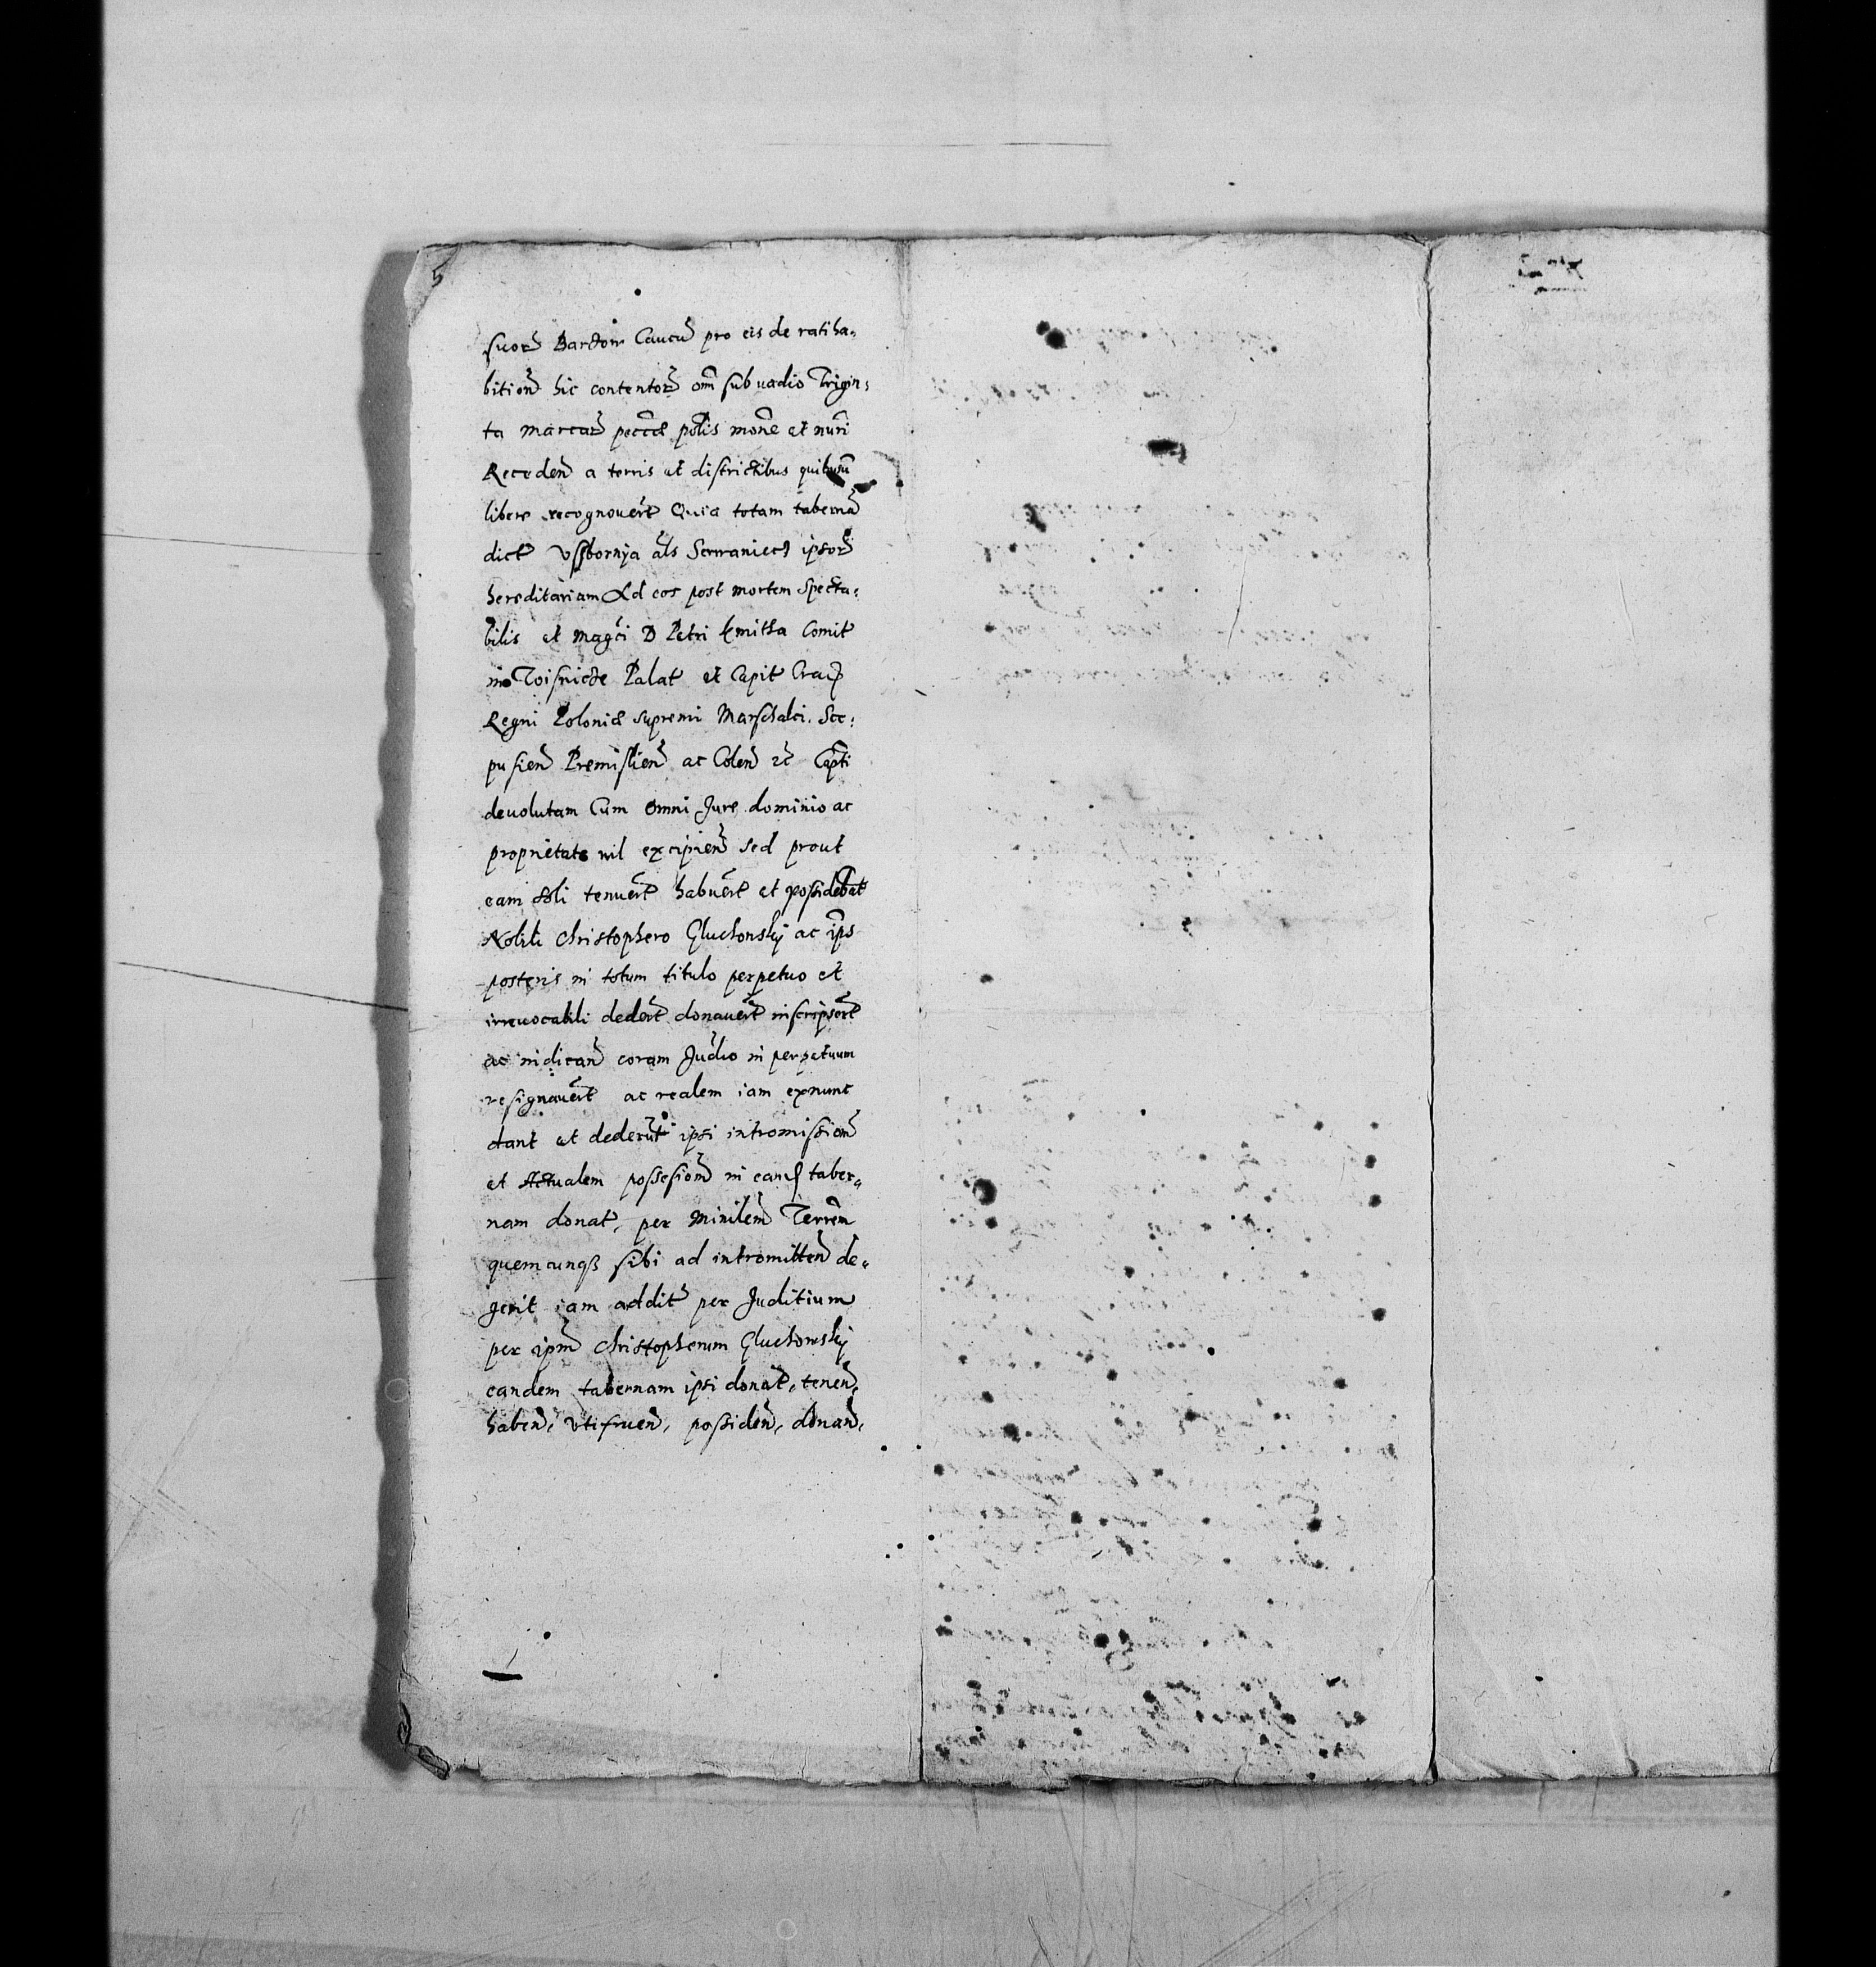 5
suor Bardoni Caucn pro eis de ratiha-
bition hic contentor om sub uadio Trigin-
ta marcar peccae polis mone et nuri
Receden a terris et districtibus quibusn
libere recognouert Quia totam taberna
dict als ipsor
hereditariam Ad eos post mortem specta-
bilis et magci D Petri kmitha Comit
in Palat et Capit Crac
Regni Poloniae supremi Marschalci. Sce-
pusien Premislien ac Colen zc Capti
deuolutam Cum omni Jure dominio ac
proprietate nil excipien sed prout
eam soli tenuert habuert et possidebat
Nobili christophero Gluchowskÿ ac ips
posteris in totum titulo perpetuo et
irreuocabili dedert donauert inscripsert
ac indican coram Judio in perpetuum
resignauert ac realem iam exnunc
dant et dederut ipsi intromission
et Actualem possesion in eand taber-
nam donat, per Minilem Terrem
quemcunqz sibi ad intromitten de-
gerit iam addit per Juditium
per ipm christopherum Gluchowskÿ
eandem tabernam ipsi donat, tenen,
haben, vtifruen, possiden, donan,